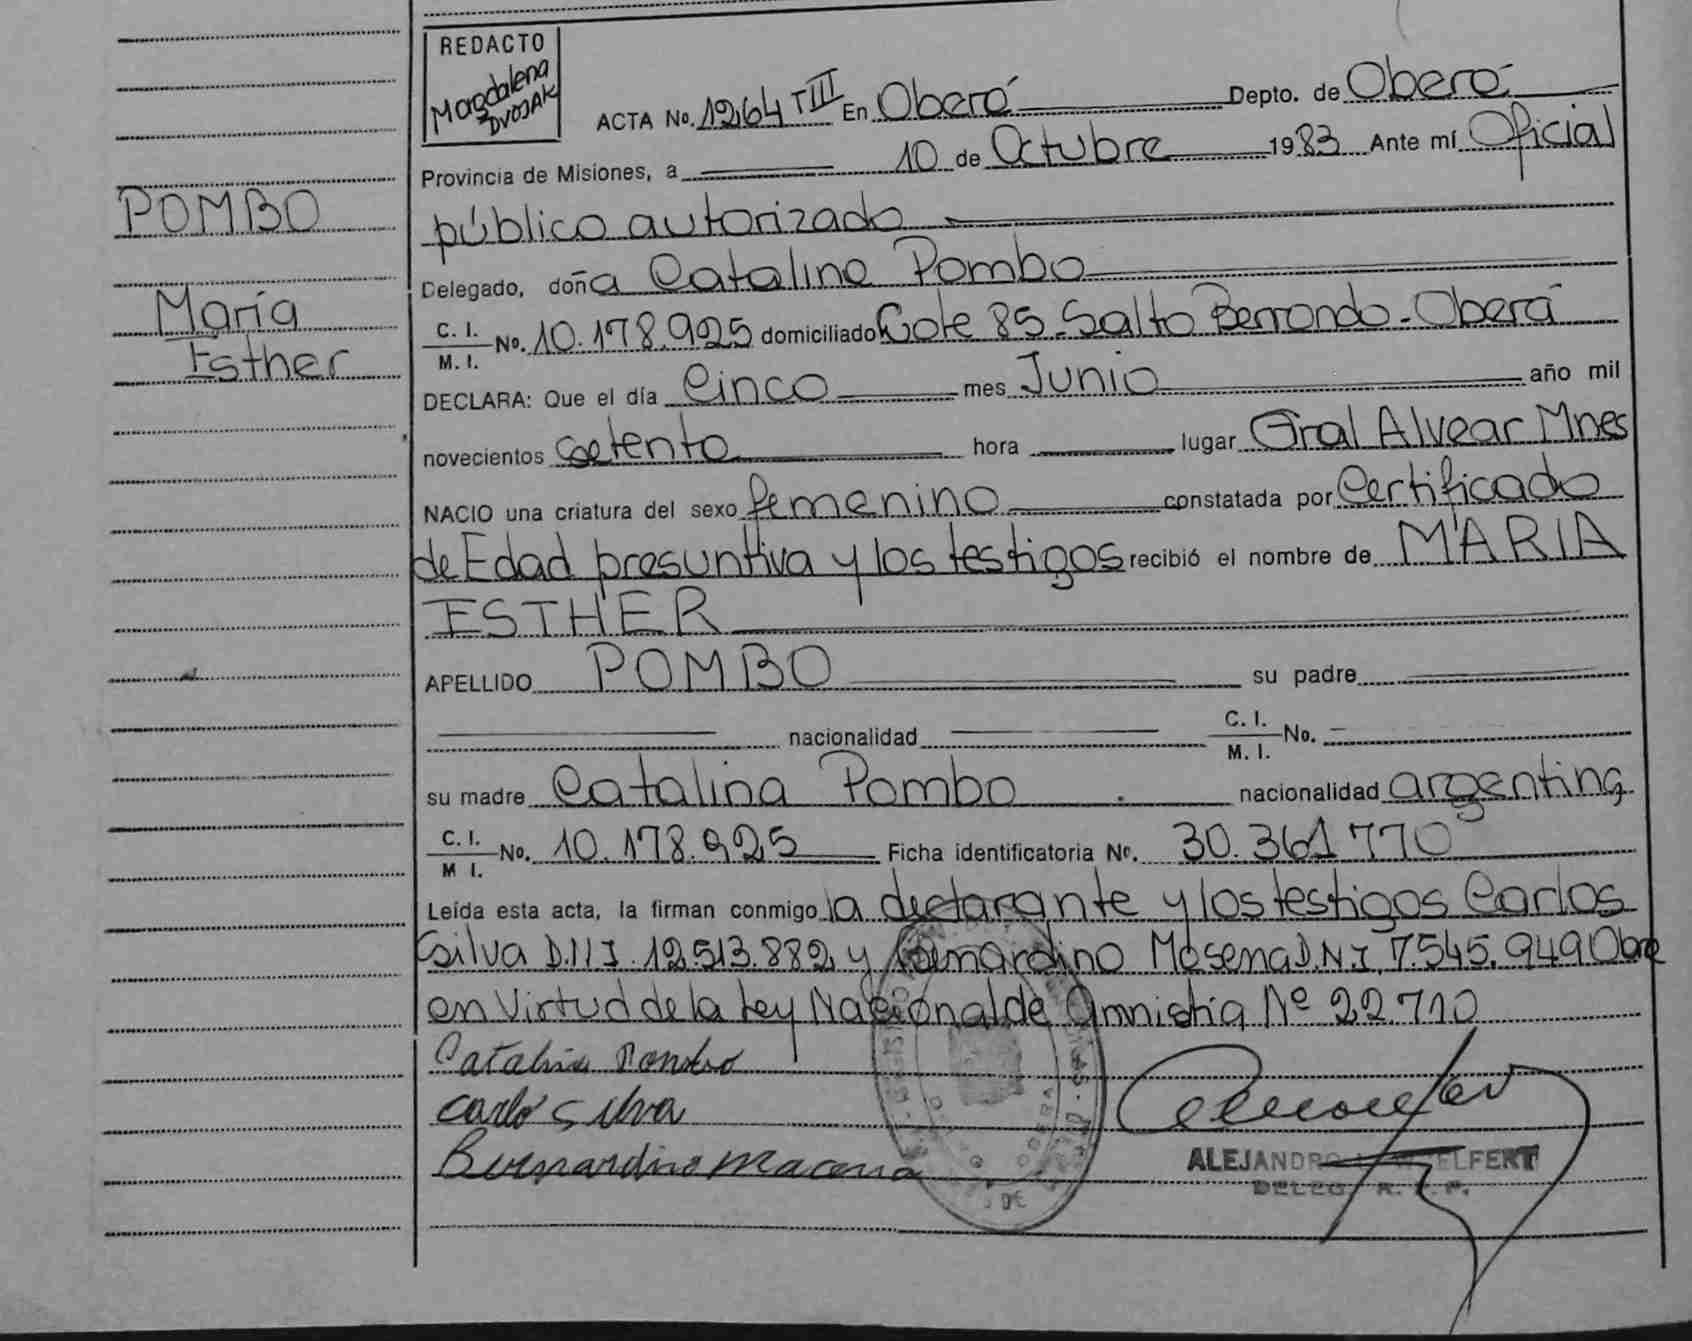 REDACTO
Magdalena
DVOJAK
ACTA No. 1264 TIII En Oberá Depto. de Oberá
Provincia de Misiones, a 10 de Octubre 1983 Ante mí Oficial
público autorizado
Delegado, doña Catalina Pombo
C. I.
M. I. No. 10.178.925 domiciliado Lote 85-Salto Berrondo-Oberá
DECLARA: Que el día Cinco mes Junio año mil
novecientos setenta hora lugar Gral Alvear Mnes
NACIO una criatura del sexo femenino constatada por Certificado
de Edad presuntiva y los testigos recibió el nombre de MARIA
ESTHER
APELLIDO POMBO su padre
nacionalidad C. I.
M. I. No.
su madre Catalina Pombo nacionalidad argentina
C. I.
M I. No. 10.178.925 Ficha identificatoria No. 30.361770
Leída esta acta, la firman conmigo la declarante y los testigos Carlos
Silva D.N.I. 12513.882 y Bernardino Masena D.N.I. 7.545.949 Obre
en Virtud de la Ley Nacional de Amnistía Nº 22.710
Catalina Pombo
Carlos Silva
Bernardino Macena
ALEJANDRO ELFERT
DELEG. R. . P.
POMBO
María
Esther